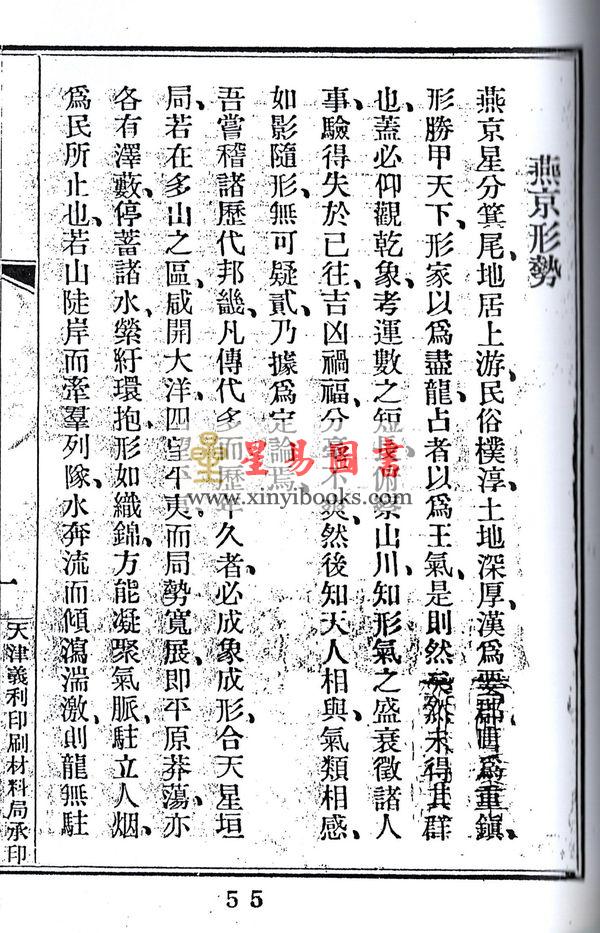 燕京形勢
燕京星分箕尾、地居上游、民俗樸淳、土地深厚、漢爲要郡、唐爲重鎮、
形勝甲天下、形家以爲盡龍、占者以爲王氣、是則然矣、然未得其群
也、蓋必仰觀乾象、考運數之短長、俯察山川、知形氣之盛衰、徵諸人
事、驗得失於已往、吉凶禍福、分毫不爽、然後知天人相與、氣類相感、
如影隨形、無可疑貳、乃據爲定論焉、
吾嘗稽諸歷代邦畿、凡傳代多而歷年久者、必成象成形、合天星垣
局、若在多山之區、咸開大洋、四望平夷、而局勢寬展、即平原莽蕩、亦
各有澤藪、停蓄諸水、縈紆環抱、形如織錦、方能凝聚氣脈、駐立人烟、
爲民所止也、若山陡岸而牽羣列隊、水奔流而傾瀉湍激、則龍無駐
一
天津義利印刷材料局承印
星易圖書
www.xinyibooks.com
55